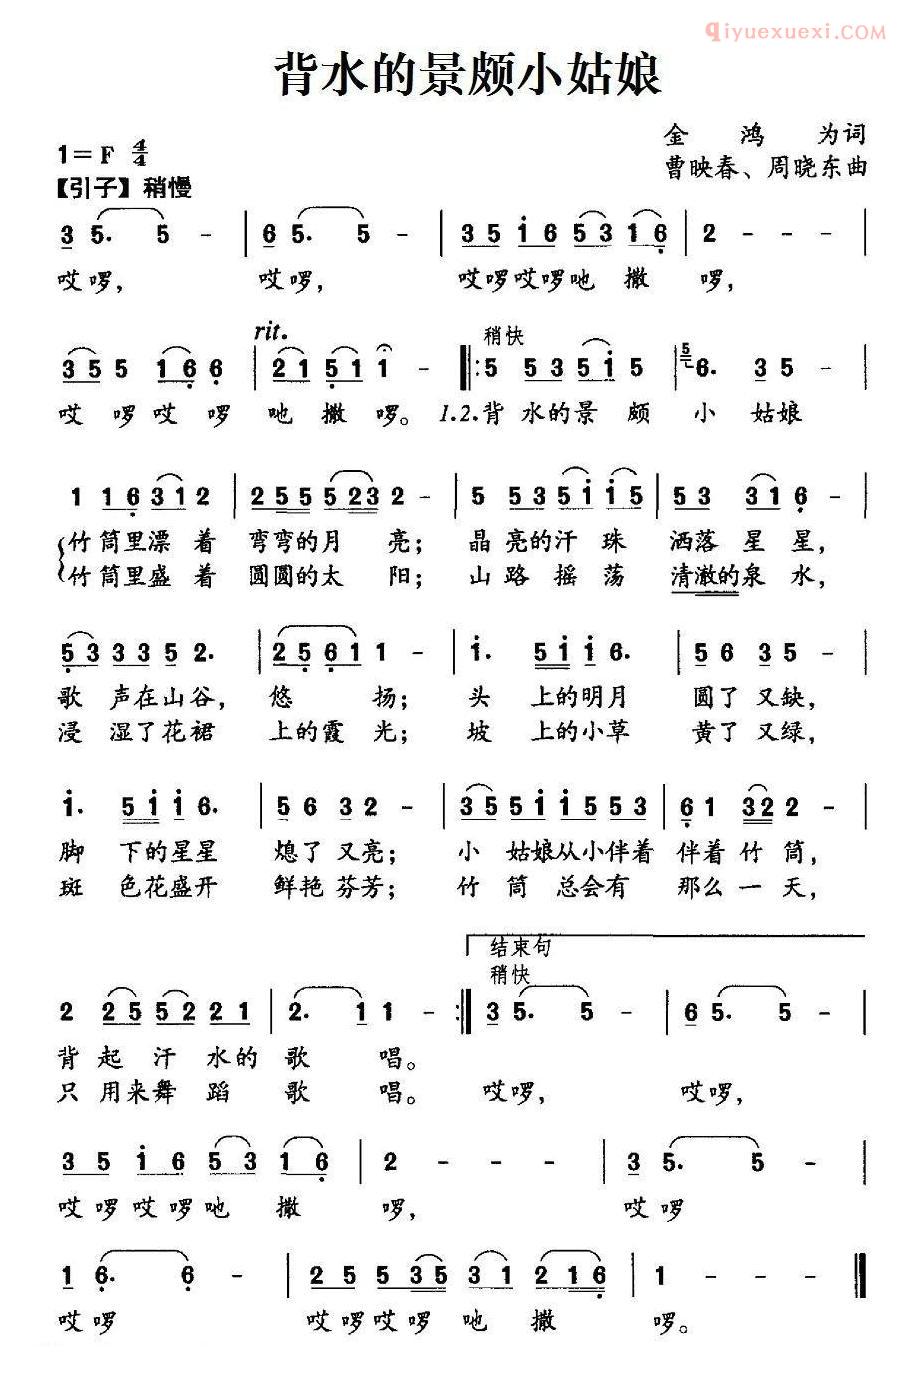 qiyuexuexi.com
背水的景颇小姑娘
金鸿为词
1=F 4/4
曹映春、周晓东曲
【引子】稍慢
3 5. 5 - | 6 5. 5 - | 3 5 i 6 5 3 1 6 | 2 - - - |
哎啰, 哎啰, 哎啰哎啰吔撒啰,
rit. 稍快
3 5 5 1 6 6 | 2 1 5 1 1 - ‖: 5 5 3 5 i 5 | 5 6. 3 5 - |
哎啰哎啰吔撒啰。1.2.背水的景颇小姑娘
1 1 6 3 1 2 | 2 5 5 5 2 3 2 - | 5 5 3 5 i i 5 | 5 3 3 1 6 - |
竹筒里漂着弯弯的月亮; 晶亮的汗珠洒落星星,
竹筒里盛着圆圆的太阳; 山路摇荡清澈的泉水,
5 3 3 3 5 2. | 2 5 6 1 1 - | i. 5 i i 6. | 5 6 3 5 - |
歌声在山谷, 悠扬; 头上的明月圆了又缺,
浸湿了花裙上的霞光; 坡上的小草黄了又绿,
i. 5 i i 6. | 5 6 3 2 - | 3 5 5 i i 5 5 3 | 6 1 3 2 2 - |
脚下的星星熄了又亮; 小姑娘从小伴着伴着竹筒,
斑色花盛开鲜艳芬芳; 竹筒总会有那么一天,
结束句
稍快
2 2 5 5 2 2 1 | 2. 1 1 - :‖ 3 5. 5 - | 6 5. 5 - |
背起汗水的歌唱。
只用来舞蹈歌唱。 哎啰, 哎啰,
3 5 i 6 5 3 1 6 | 2 - - - | 3 5. 5 - |
哎啰哎啰吔撒啰, 哎啰
1 6. 6 - | 2 5 5 3 5 3 1 2 1 6 | 1 - - - ‖
哎啰 哎啰哎啰吔撒啰。